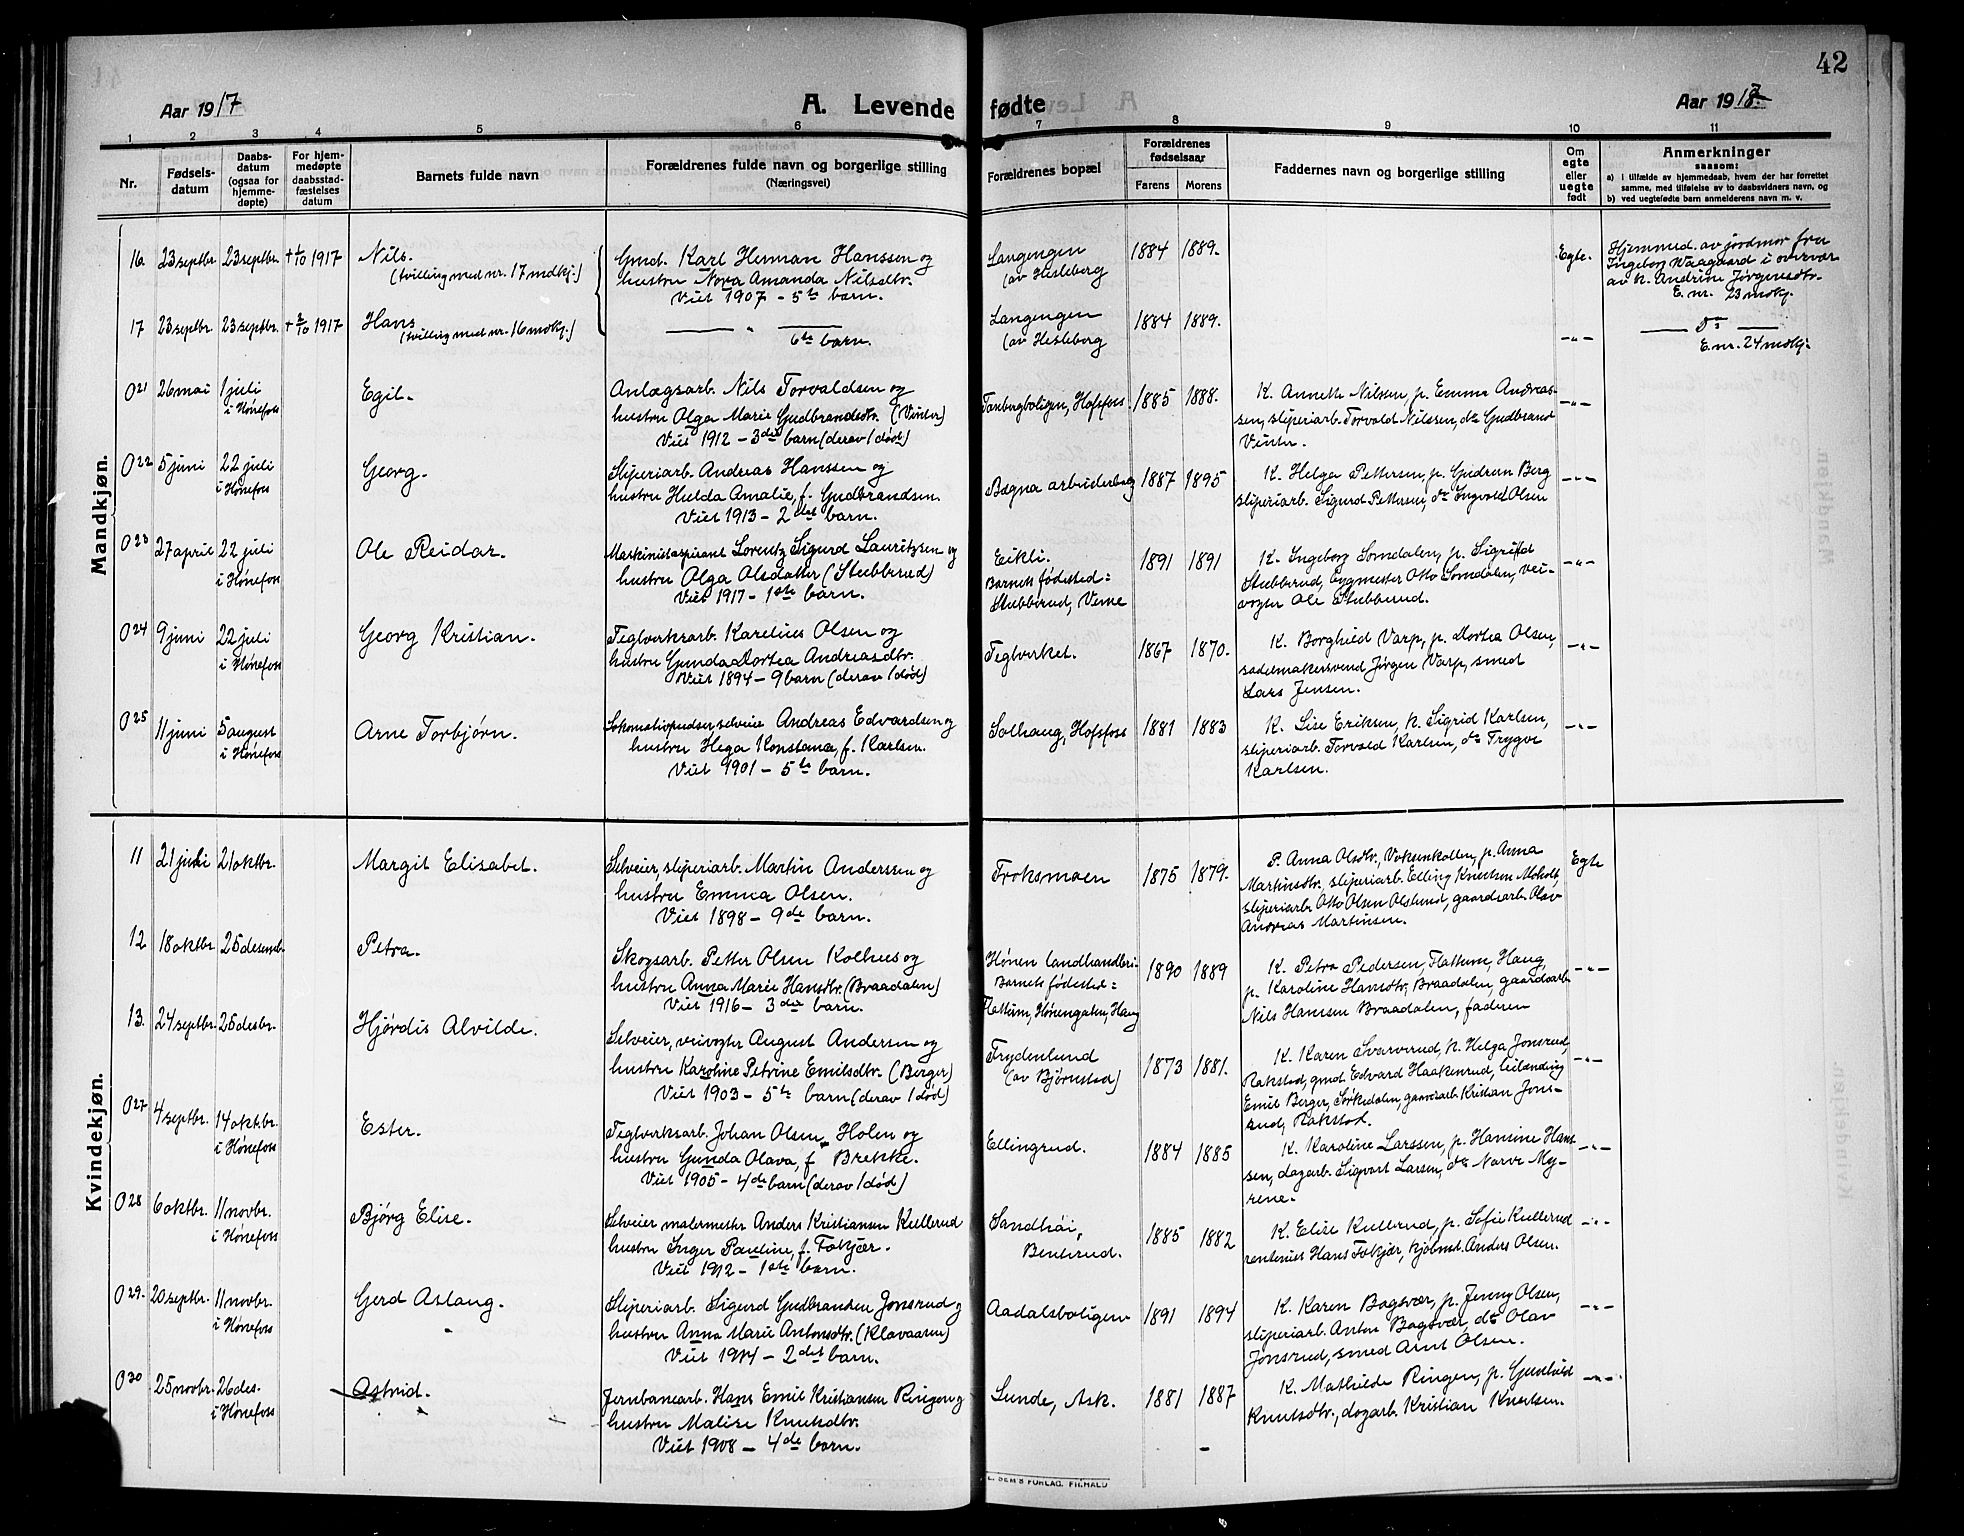 42
Aar 1917
A. Levende fødte
Aar 1917
1 2 3 4 5 6 7 8 9 10 11
Nr.
Fødsels-
datum
Daabs-
datum
(ogsaa for
hjemme-
døpte)
For hjem-
medøpte
daabsstad-
fæstelses
datum
Barnets fulde navn
Forældrenes fulde navn og borgerlige stilling
(Næringsvei)
Forældrenes bopæl
Forældrenes
fødselsaar
Farens Morens
Faddernes navn og borgerlige stilling
Om
egte
eller
uegte
født
Anmerkninger
saasom:
a) i tilfælde av hjemmedaab, hvem der har forrettet
samme, med tilføielse av to daabsvidners navn, og
b) ved uegtefødte barn anmelderens navn m. v.
Mandkjøn.
16 23 septbr. 23 septbr. + 1/10 1917 Nils.
(tvilling med nr. 17 mdkj.)
Gmd. Karl Herman Hanssen og
hustru Nora Amanda Nilsdtr.
Viet 1907 - 5te barn.
Langengen
(av Hesleberg
1884 1889.
Egte.
Hjemmed. av jordmor fru
Ingeborg Waagaard i overvær
av k. Andrine Jørgensdtr.
E. nr. 23 mdkj.
17 23 septbr. 23 septbr. + 2/10 1917 Hans
(tvilling med nr. 16 mdkj.)
— " —
6te barn.
Langengen
(av Hesleberg
1884 1889.
-"-
— do —
E. nr. 24 mdkj.
O 21 26 mai 1 juli
i Hønefoss
Egil.
Anlægsarb. Nils Torvaldsen og
hustru Olga Marie Gudbrandsdtr. (Vinter)
Viet 1912 - 3die barn (derav 1 død)
Tanbergboligen, Hofsfoss.
1885 1888.
K. Anneth Nilsen, p. Emma Andreas-
sen, sliperiarb. Torvald Nilssen, do Gudbrand
Vinter.
-"-
O 22 5 juni 22 juli
i Hønefoss
Georg.
Sliperiarb. Andreas Hanssen og
hustru Hulda Amalie, f. Gudbrandsen.
Viet 1913 - 2det barn.
Bægna arbeiderbolig
1887 1895
K. Helga Pettersen, p. Gudrun Berg
sliperiarb. Sigurd Pettersen, do Ingvald Olsen
-"-
O 23 27 april 22 juli
i Hønefoss
Ole Reidar.
Maskinistaspirant Lorentz Sigurd Lauritzsen og
hustru Olga Olsdatter (Stubberud)
Viet 1917 - 1ste barn.
Eikli.
Barnets fødested:
Stubberud, Veme
1891 1891
K. Ingeborg Somdalen, p. Sigrid
Stubberud, bygmester Otto Somdalen, vei-
vogter Ole Stubberud.
-"-
O 24 9 juni 22 juli
i Hønefoss
Georg Kristian.
Teglverksarb. Karelius Olsen og
hustru Gunda Dortea Andreasdtr.
Viet 1894 - 9 barn (derav 1 død)
Teglverket.
1867 1870.
K. Borghild Varp, p. Dortea Olsen,
sadelmakersvend Jørgen Varp, smed
Lars Jensen.
-"-
O 25 11 juni 5 august
i Hønefoss
Arne Torbjørn.
Lokomotivpudser, selveier Andreas Edvardsen og
hustru Helga Konstanse, f. Karlsen.
Viet 1901 - 5te barn.
Solhaug, Hofsfoss
1881 1883
K. Lise Eriksen, k. Sigrid Karlsen,
sliperiarb. Torvald Karlsen, do Trygve
Karlsen.
-"-
Kvindekjøn.
11 21 juli 21 oktbr.
Margit Elisabet.
Selveier, sliperiarb. Martin Anderssen og
hustru Emma Olsen.
Viet 1898 - 9de barn.
Troksmoen
1875 1879.
P. Anna Olsdtr., Voksenkollen, p. Anna
Martinsdtr., sliperiarb. Elling Knutsen
sliperiarb. Otto Olsen Olslund, gaardsarb. Olav
Andreas Martinsen.
Egte
12 18 oktbr. 25 desemb.
Petra.
Skogsarb. Petter Olsen Kolhus og
hustru Anna Marie Hansdtr. (Braadalen)
Viet 1916 - 3die barn.
Hønen landhandleri.
Barnets fødested:
Flattum, Hønengaten, Haug
1890 1889
K. Petra Pedersen, Flattum, Haug,
p. Karoline Hansdtr., Braadalen, gaardsarb.
Nils Hansen Braadalen, faderen
-"-
13. 24 septbr. 25 desbr.
Hjørdis Alvilde.
Selveier, veivogter August Andersen og
hustru Karoline Petrine Emilsdtr. (Berger)
Viet 1903 - 5te barn (derav 1 død)
Frydenlund
(av Bjørnstad)
1873 1881.
K. Karen Svarverud, k. Helga Jonsrud,
Rakstad, gmd. Edvard Haakenrud, leilænding
Emil Berger, Sørkedalen, gaardsarb. Kristian Jons-
rud, Rakstad.
-"-
O 27 4 septbr. 14 oktbr.
i Hønefoss
Ester.
Teglverksarb. Johan Olsen Holen og
hustru Gunda Olava, f. Brekke.
Viet 1905 - 4de barn (derav 1 død)
Ellingrud.
1884 1885
K. Karoline Larssen, p. Hansine Han-
sen, dagarb. Sigvart Larsen, do Narve My-
rene.
-"-
O 28 6 oktbr. 11 novbr.
i Hønefoss
Bjørg Elise.
Selveier malermester Anders Kristiansen Kullerud
hustru Inger Pauline, f. Fokjær.
Viet 1912 - 1ste barn.
Sandhøi,
Benterud.
1885 1882
K. Elise Kullerud, p. Sofie Kullerud
rentenist Hans Fokjær, kjøbmd. Anders Olsen.
-"-
O 29. 20 septbr. 11 novbr.
i Hønefoss
Gerd Aslaug.
Sliperiarb. Sigurd Gudbransen Jonsrud og
hustru Anna Marie Antonsdtr. (Klavaasen)
Viet 1914 - 2det barn.
Aadalsboligen
1891 1894
K. Karen Bogsvær, p. Jenny Olsen,
sliperiarb. Anton Bogsvær, do Olav
Jonsrud, smed Arnt Olsen.
-"-
O 30 25 novbr. 26 des.
i Hønefoss
Astrid.
Jernbanearb. Hans Emil Kristiansen Ringen og
hustru Malise Knutsdtr.
Viet 1908 - 4de barn.
Lunde, Ask.
1881 1887
K. Mathilde Ringen, p. Gunhild
Knutsdtr., dagarb. Kristian Knutsen.
-"-
SEM'S FORLAG, FR.HALD